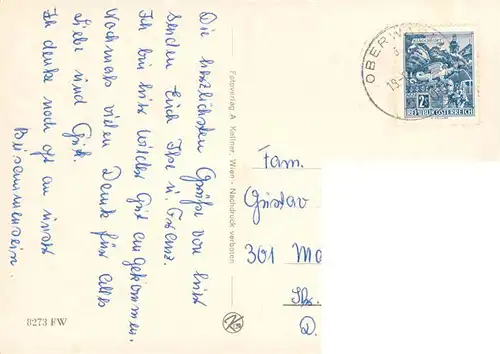 Die herzlichsten Grüße von hier
senden Euch Ilse u. Franz.
Ich bin hier wieder gut angekommen.
Nochmals vielen Dank für alles
Liebe und Gute.
Ich denke noch oft an unser
Beisammensein.
8273 FW
Fotoverlag A. Kellner, Wien - Nachdruck verboten
OBERW
19
2S
REPUBLIK ÖSTERREICH
Fam.
Gustav
301 Ma
D.